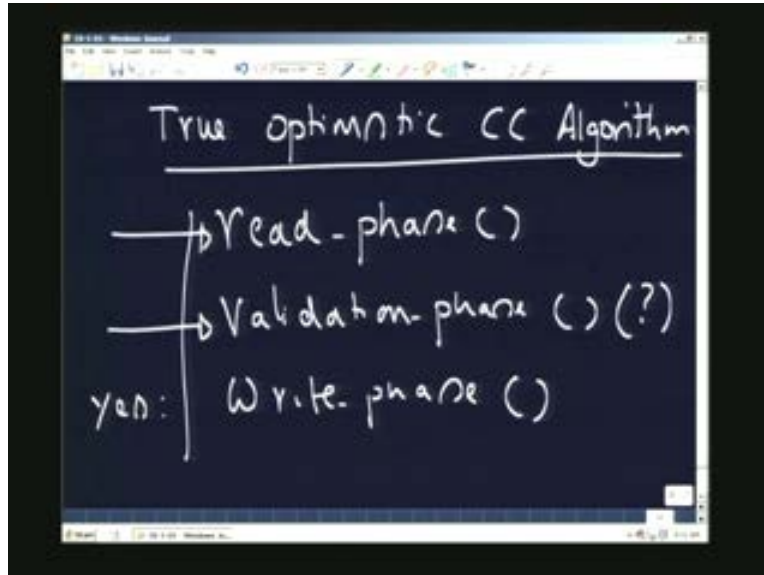 True Optimistic CC Algorithm
read-phase ()
Validation-phase () (?)
yes: Write-phase ()